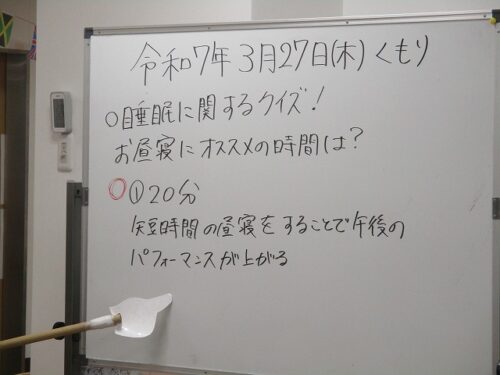 令和7年3月27日(木)くもり
○睡眠に関するクイズ!
お昼寝にオススメの時間は?
○①20分
短時間の昼寝をすることで午後の
パフォーマンスが上がる